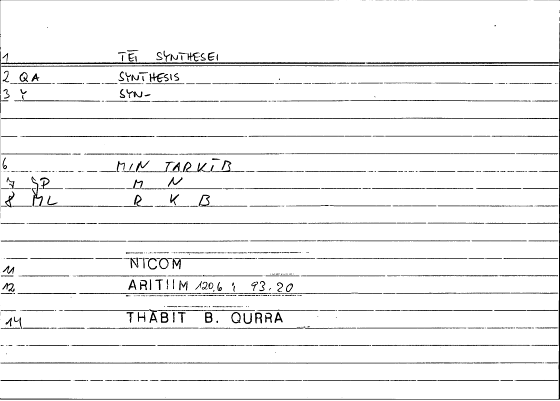 1 TĒI SYNTHESEI
2 QA SYNTHESIS
3 Y SYN-
6 MIN TARKĪB
7 JP M N
8 ML R K B
11 NICOM
12 ARITIIM 120,6 ; 93.20
14 THĀBIT B. QURRA